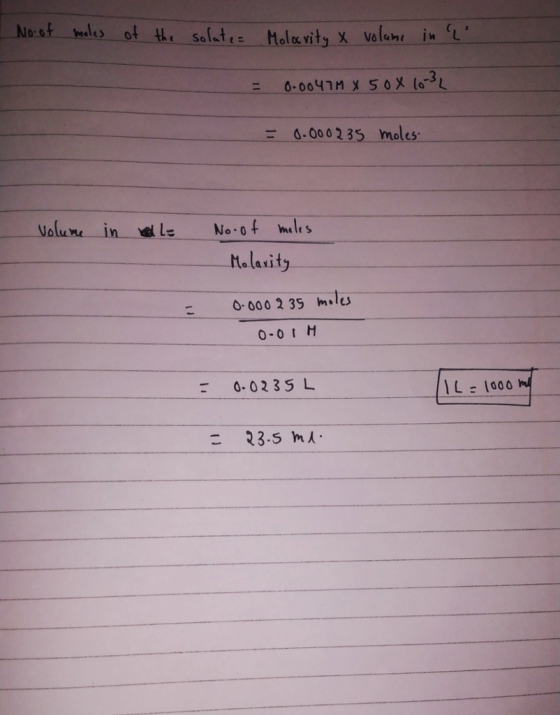 No.of moles of the solute = Molarity x volume in 'L'
= 0.0047M x 50 x 10⁻³L
= 0.000235 moles.
Volume in L = No.of moles
Molarity
= 0.000235 moles
0.01 M
= 0.0235 L
1L = 1000 ml
= 23.5 ml.